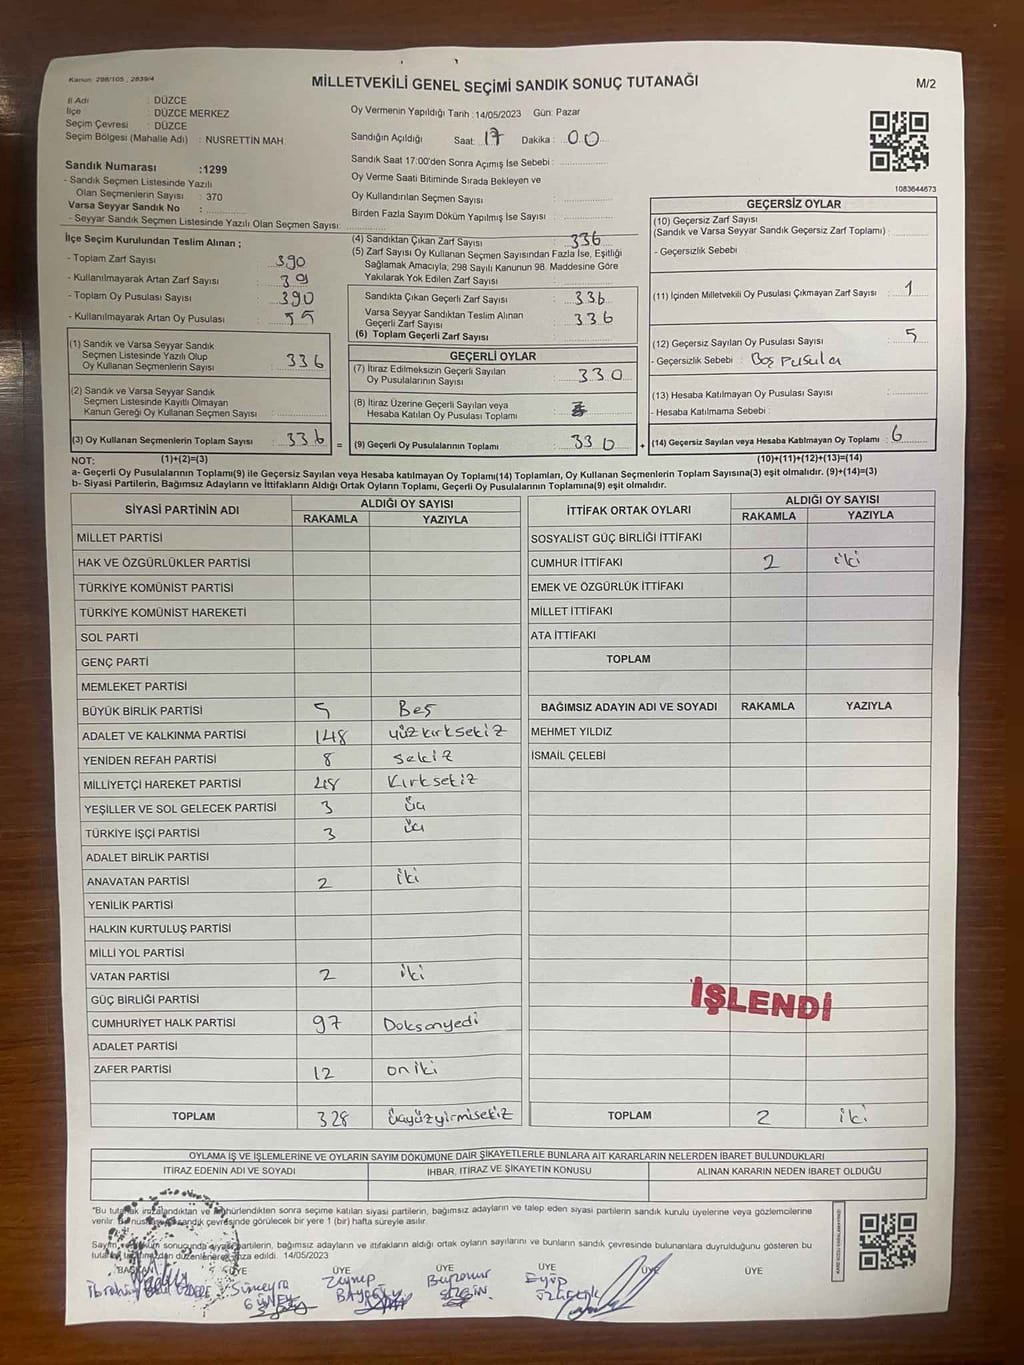 Kanun: 298/105 , 2839/4
MİLLETVEKİLİ GENEL SEÇİMİ SANDIK SONUÇ TUTANAĞI
M/2
İl Adı : DÜZCE
İlçe : DÜZCE MERKEZ
Seçim Çevresi : DÜZCE
Seçim Bölgesi (Mahalle Adı) : NUSRETTİN MAH.
Oy Vermenin Yapıldığı Tarih : 14/05/2023 Gün: Pazar
Sandığın Açıldığı Saat: 17 Dakika : 00
Sandık Saat 17:00'den Sonra Açımış İse Sebebi :
Oy Verme Saati Bitiminde Sırada Bekleyen ve
Oy Kullandırılan Seçmen Sayısı :
Birden Fazla Sayım Döküm Yapılmış İse Sayısı :
1083644673
Sandık Numarası :1299
- Sandık Seçmen Listesinde Yazılı
Olan Seçmenlerin Sayısı : 370
Varsa Seyyar Sandık No :
- Seyyar Sandık Seçmen Listesinde Yazılı Olan Seçmen Sayısı:
İlçe Seçim Kurulundan Teslim Alınan ;
- Toplam Zarf Sayısı : 390
- Kullanılmayarak Artan Zarf Sayısı :
- Toplam Oy Pusulası Sayısı : 390
- Kullanılmayarak Artan Oy Pusulası : 55
(1) Sandık ve Varsa Seyyar Sandık
Seçmen Listesinde Yazılı Olup
Oy Kullanan Seçmenlerin Sayısı : 336
(2) Sandık ve Varsa Seyyar Sandık
Seçmen Listesinde Kayıtlı Olmayan
Kanun Gereği Oy Kullanan Seçmen Sayısı :
(3) Oy Kullanan Seçmenlerin Toplam Sayısı : 336 =
(4) Sandıktan Çıkan Zarf Sayısı : 336
(5) Zarf Sayısı Oy Kullanan Seçmen Sayısından Fazla İse, Eşitliği
Sağlamak Amacıyla, 298 Sayılı Kanunun 98. Maddesine Göre
Yakılarak Yok Edilen Zarf Sayısı :
Sandıkta Çıkan Geçerli Zarf Sayısı : 336
Varsa Seyyar Sandıktan Teslim Alınan
Geçerli Zarf Sayısı : 336
(6) Toplam Geçerli Zarf Sayısı
GEÇERLİ OYLAR
(7) İtiraz Edilmeksizin Geçerli Sayılan
Oy Pusulalarının Sayısı : 330
(8) İtiraz Üzerine Geçerli Sayılan veya
Hesaba Katılan Oy Pusulası Toplamı :
(9) Geçerli Oy Pusulalarının Toplamı : 330 +
GEÇERSİZ OYLAR
(10) Geçersiz Zarf Sayısı
(Sandık ve Varsa Seyyar Sandık Geçersiz Zarf Toplamı) :
- Geçersizlik Sebebi :
(11) İçinden Milletvekili Oy Pusulası Çıkmayan Zarf Sayısı : 1
(12) Geçersiz Sayılan Oy Pusulası Sayısı : 5
- Geçersizlik Sebebi : Boş pusula
(13) Hesaba Katılmayan Oy Pusulası Sayısı :
- Hesaba Katılmama Sebebi :
(14) Geçersiz Sayılan veya Hesaba Katılmayan Oy Toplamı : 6
NOT: (1)+(2)=(3) (10)+(11)+(12)+(13)=(14)
a- Geçerli Oy Pusulalarının Toplamı(9) ile Geçersiz Sayılan veya Hesaba katılmayan Oy Toplamı(14) Toplamları, Oy Kullanan Seçmenlerin Toplam Sayısına(3) eşit olmalıdır. (9)+(14)=(3)
b- Siyasi Partilerin, Bağımsız Adayların ve İttifakların Aldığı Ortak Oyların Toplamı, Geçerli Oy Pusulalarının Toplamına(9) eşit olmalıdır.
SİYASİ PARTİNİN ADI ALDIĞI OY SAYISI
RAKAMLA YAZIYLA
MİLLET PARTİSİ
HAK VE ÖZGÜRLÜKLER PARTİSİ
TÜRKİYE KOMÜNİST PARTİSİ
TÜRKİYE KOMÜNİST HAREKETİ
SOL PARTİ
GENÇ PARTİ
MEMLEKET PARTİSİ
BÜYÜK BİRLİK PARTİSİ 5 Beş
ADALET VE KALKINMA PARTİSİ 148 yüzkırksekiz
YENİDEN REFAH PARTİSİ 8 sekiz
MİLLİYETÇİ HAREKET PARTİSİ 48 Kırksekiz
YEŞİLLER VE SOL GELECEK PARTİSİ 3 üç
TÜRKİYE İŞÇİ PARTİSİ 3 üç
ADALET BİRLİK PARTİSİ
ANAVATAN PARTİSİ 2 iki
YENİLİK PARTİSİ
HALKIN KURTULUŞ PARTİSİ
MİLLİ YOL PARTİSİ
VATAN PARTİSİ 2 iki
GÜÇ BİRLİĞİ PARTİSİ
CUMHURİYET HALK PARTİSİ 97 Doksanyedi
ADALET PARTİSİ
ZAFER PARTİSİ 12 oniki
TOPLAM 328 üçyüzyirmisekiz
İTTİFAK ORTAK OYLARI ALDIĞI OY SAYISI
RAKAMLA YAZIYLA
SOSYALİST GÜÇ BİRLİĞİ İTTİFAKI
CUMHUR İTTİFAKI 2 iki
EMEK VE ÖZGÜRLÜK İTTİFAKI
MİLLET İTTİFAKI
ATA İTTİFAKI
TOPLAM
BAĞIMSIZ ADAYIN ADI VE SOYADI RAKAMLA YAZIYLA
MEHMET YILDIZ
İSMAİL ÇELEBİ
İŞLENDİ
TOPLAM 2 iki
OYLAMA İŞ VE İŞLEMLERİNE VE OYLARIN SAYIM DÖKÜMÜNE DAİR ŞİKAYETLERLE BUNLARA AİT KARARLARIN NELERDEN İBARET BULUNDUKLARI
İTİRAZ EDENİN ADI VE SOYADI İHBAR, İTİRAZ VE ŞİKAYETİN KONUSU ALINAN KARARIN NEDEN İBARET OLDUĞU
"Bu tutanak imzalandıktan ve mühürlendikten sonra seçime katılan siyasi partilerin, bağımsız adayların ve talep eden siyasi partilerin sandık kurulu üyelerine veya gözlemcilerine
verilir. Bir nüshası sandık çevresinde görülecek bir yere 1 (bir) hafta süreyle asılır.
Sayım ve döküm sonucunda siyasi partilerin, bağımsız adayların ve ittifakların aldığı ortak oyların sayılarını ve bunların sandık çevresinde bulunanlara duyrulduğunu gösteren bu
tutanak tarafımızdan düzenlenerek imza edildi. 14/05/2023
BAŞKAN ÜYE ÜYE ÜYE ÜYE ÜYE ÜYE
İbrahim Sümeyra Zeynep Eyüp
GÜNEY